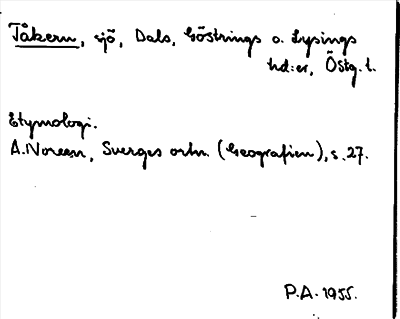 Tåkern, sjö, Dals, Göstrings o. Lysings
hd:er, Östg. l.
Etymologi.
A. Noreen, Sverges ortn. (Geografien), s. 27.
P.A. 1955.